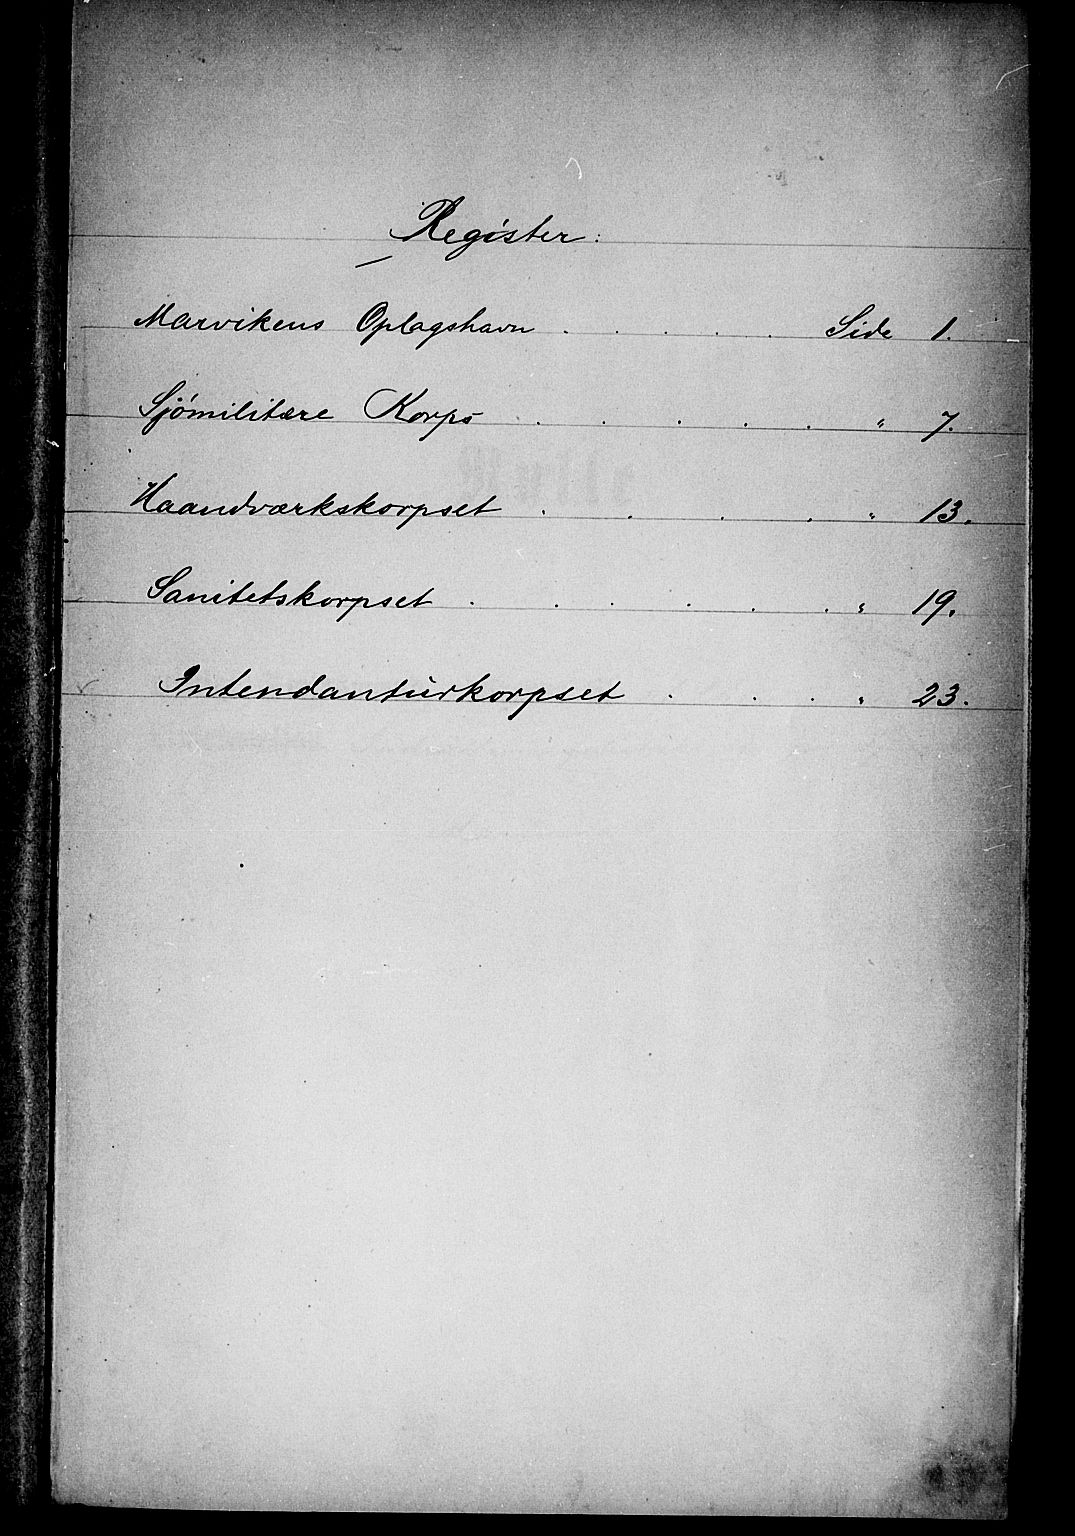 Register:
Marvikens Oplagshavn . . . . . Side 1.
Sjömilitære Korps . . . . . " 7.
Haandværkskorpset . . . . " 13.
Sanitetskorpset . . . . . . " 19.
Intendantürkorpset . . . " 23.